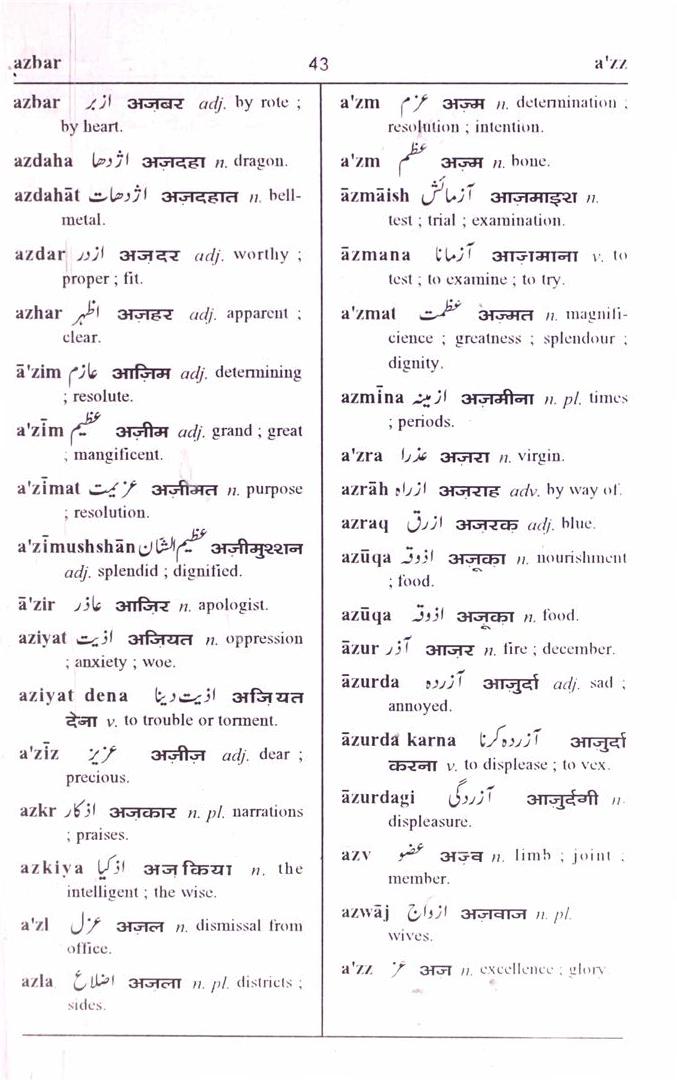 azbar
43
a'zz
azbar ازبر अज़बर adj. by rote ;
by heart.
azdaha اژدها अज़दहा n. dragon.
azdahāt اژدهات अज़दहात n. bell-
metal.
azdar ازدر अज़दर adj. worthy ;
proper ; fit.
azhar اظہر अज़हर adj. apparent ;
clear.
ā'zim عازم आज़िम adj. determining
; resolute.
a'zīm عظیم अज़ीम adj. grand ; great
; mangificent.
a'zīmat عزیمت अज़ीमत n. purpose
; resolution.
a'zīmushshān عظیم الشان अज़ीमुश्शन
adj. splendid ; dignified.
ā'zir عاذر आज़िर n. apologist.
aziyat اذیت अज़ियत n. oppression
; anxiety ; woe.
aziyat dena اذیت دینا अज़ियत
देना v. to trouble or torment.
a'zīz عزیز अज़ीज़ adj. dear ;
precious.
azkr اذکار अज़कार n. pl. narrations
; praises.
azkiya اذکیا अज़किया n. the
intelligent ; the wise.
a'zl عزل अज़ल n. dismissal from
office.
azla اضلاع अज़ला n. pl. districts ;
sides.
a'zm عزم अज़्म n. determination ;
resolution ; intention.
a'zm عظم अज़्म n. bone.
āzmāish آزمائش आज़माइश n.
test ; trial ; examination.
āzmana آزمانا आज़माना v. to
test ; to examine ; to try.
a'zmat عظمت अज़्मत n. magnifi-
cience ; greatness ; splendour ;
dignity.
azmīna ازمینہ अज़मीना n. pl. times
; periods.
a'zra عذرا अज़रा n. virgin.
azrāh ازراہ अज़राह adv. by way of.
azraq ازرق अज़रक़ adj. blue.
azūqa اذوقہ अज़ूक़ा n. nourishment
; food.
azūqa اذوقہ अज़ूक़ा n. food.
āzur آذر आज़र n. fire ; december.
āzurda آزردہ आज़ुर्दा adj. sad ;
annoyed.
āzurda karna آزردہ کرنا आज़ुर्दा
करना v. to displease ; to vex.
āzurdagi آزردگی आज़ुर्दगी n.
displeasure.
azv عضو अज़्व n. limb ; joint ;
member.
azwāj ازواج अज़वाज n. pl.
wives.
a'zz عز अज़ n. excellence ; glory